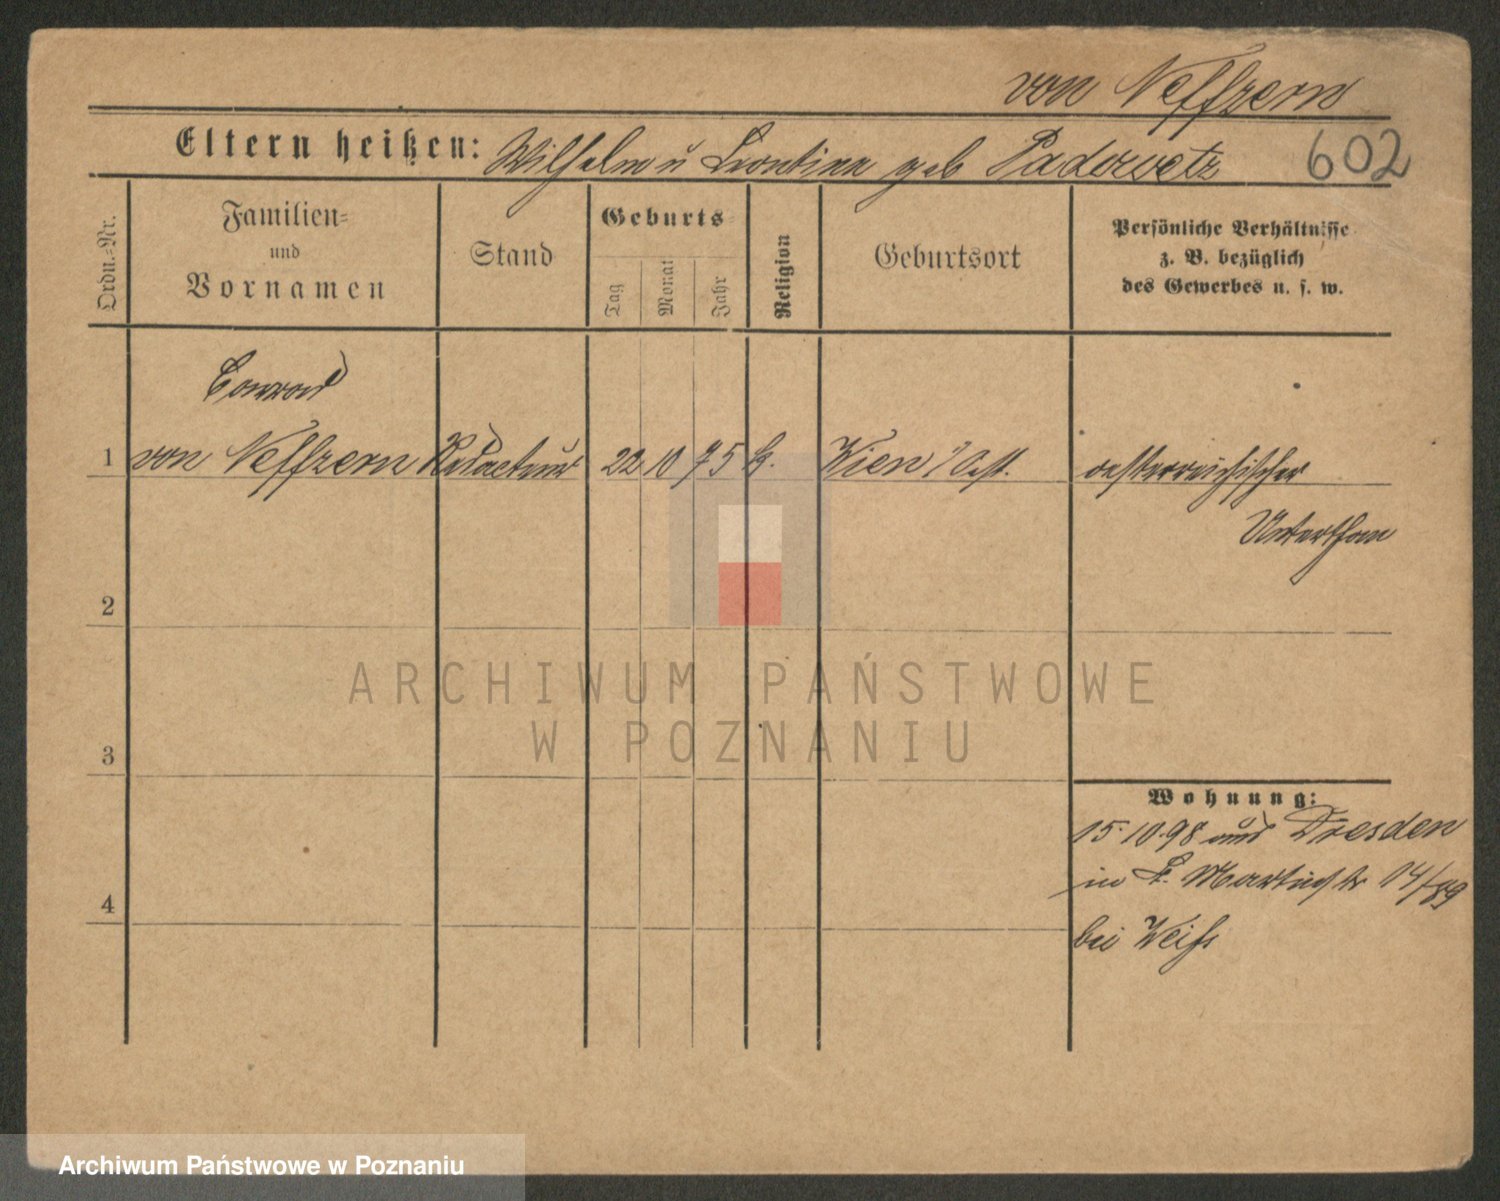 von Neffzern
Eltern heißen: Wilhelm u Leontine geb Padowetz
602
Ordn.-Nr.
Familien-
und
Vornamen
Stand
Geburts-
Tag
Monat
Jahr
Religion
Geburtsort
Persönliche Verhältnisse
z. B. bezüglich
des Gewerbes u. s. w.
Conrad
1 von Neffzern Redacteur 22 10 75 k. Wien i/Oest. oesterreichischer
Unterthan
2
3
4
Wohnung:
15.10.98 aus Dresden
in St. Martinstr 14/
bei Weiß
ARCHIWUM PAŃSTWOWE
W POZNANIU
Archiwum Państwowe w Poznaniu